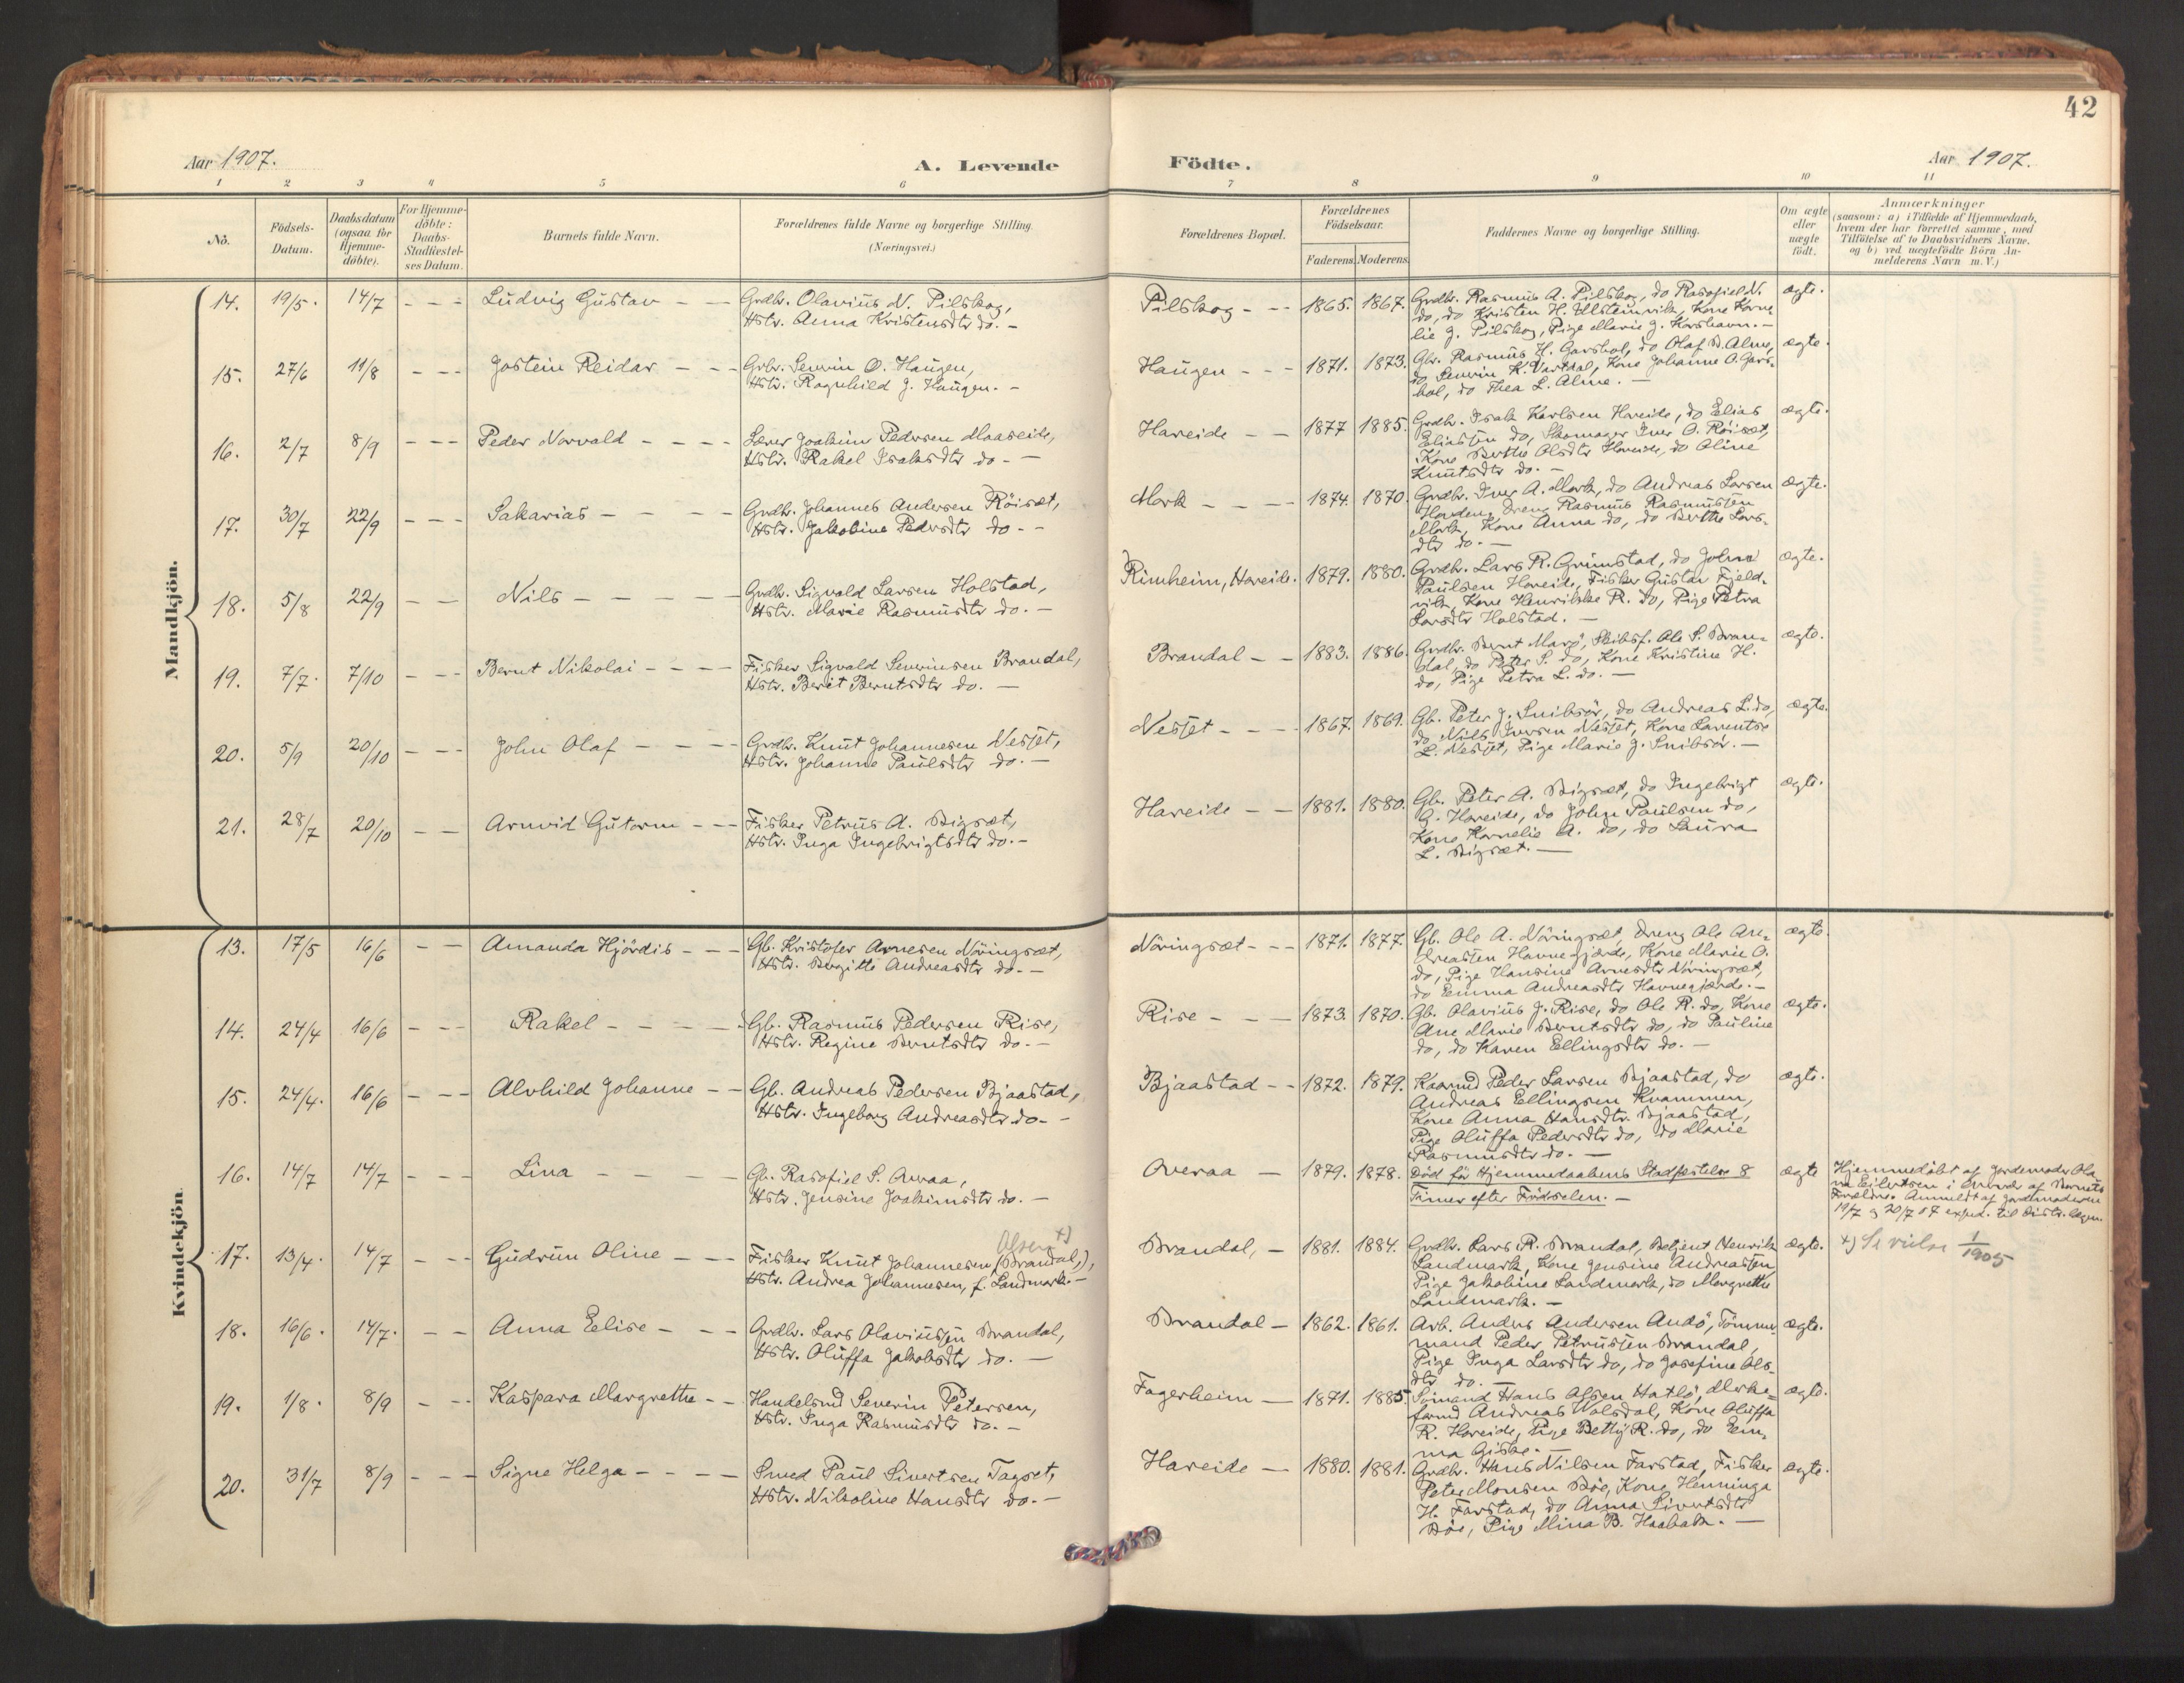 42
Aar 1907.
A. Levende Födte.
Aar 1907.
1 2 3 4 5 6 7 8 9 10 11
Nö.
Födsels-Datum.
Daabsdatum (ogsaa for Hjemme-döbte).
For Hjemme-döbte: Daabs-Stadfæstel-ses Datum.
Barnets fulde Navn.
Forældrenes fulde Navne og borgerlige Stilling (Næringsvei.)
Forældrenes Bopæl.
Forældrenes Födselsaar.
Faderens. Moderens.
Faddernes Navne og borgerlige Stilling.
Om ægte eller uægte födt.
Anmærkninger
(saasom: a) i Tilfælde af Hjemmedaab,
hvem der har forrettet samme, med
Tilföielse af to Daabsvidners Navne,
og b) ved uægtefödte Börn An-
melderens Navn m. V.)
Mandkjön.
14. 19/5. 14/7 - - - Ludvig Gustav - - Grdbr. Olavius N. Pilskog,
Hstr. Anna Kristensdtr do. -
Pilskog - - 1865. 1867. Grdbr. Rasmus A. Pilskog, do Rasofiel N.
do, do Kristen H. Ulsteinvik, Kone Korne
lie J. Pilskog, Pige Marie J. Korshavn. -
ægte.
15. 27/6 11/8 - - - Jostein Reidar - - Grbr. Severin O. Haugen,
Hstr. Ragnhild J. Haugen. -
Haugen - - - 1871. 1873. Gbr. Rasmus H. Garshol, do Olaf B. Alme,
do, Severin K. Vartdal, Kone Johanne O. Gars-
hol, do Thea L. Alme. -
ægte.
16. 2/7 8/9 - - - Peder Norvald - - - - Lærer Joakim Pedersen Maaseide,
Hstr. Rakel Isaksdtr do - -
Hareide - - 1877 1885. Grdbr. Isak Karlsen Hareide, do Elias
Eliassen do, Skomager Iver O. Röisæt,
Kone Berthe Olsdtr Hareide, do Oline
Knutsdtr do. -
ægte.
17. 30/7 22/9 - - - Sakarias - - - - Grdbr. Johannes Andersen Röisæt,
Hstr. Jakobine Pedersdtr do - -
Mork - - - 1874. 1870. Grdbr. Iver A. Mork, do Andreas Larsen
Hovden, Dreng Rasmus Rasmussen
Mork, Kone Anna do, do Berthe Lars-
dtr do. -
ægte.
18. 5/8 22/9 - - Nils - - - - - Grdbr. Sigvald Larsen Holstad,
Hstr. Marie Rasmusdtr do. -
Rimheim, Hareide. 1879. 1880. Grdbr. Lars R. Grimstad, do John
Paulsen Hareide, Fisker Gustav Fjeld-
vik, Kone Henrikke R. do, Pige Petra
Larsdtr Holstad. -
ægte.
19. 7/7. 7/10 - - - Bernt Nikolai - - - - Fisker Sigvald Severinsen Brandal,
Hstr. Berit Berntsdtr do. -
Brandal - - 1883. 1886. Grdbr. Bernt Marö, Skibsf. Ole S. Bran-
dal, do Peter S. do, Kone Kristine H.
do, Pige Petra L. do. -
ægte.
20. 5/9 20/10 - - - John Olaf - - - - Grdbr. Knut Johannesen Nesset,
Hstr. Johanne Paulsdtr do. -
Nesset - - - 1867. 1869. Gb. Peter J. Snibsör, do Andreas L. do,
do Nils Iversen Nesset, Kone Laurentse
L. Nesset, Pige Marie J. Snibsör. -
ægte.
21. 28/7 20/10 - - Arnvid Gutorm - - Fisker Petrus A. Bigset,
Hstr. Inga Ingebrigtsdtr do. -
Hareide - - 1881. 1880. Gb. Peter A. Bigsæt, do Ingebrigt
G. Hareide, do John Paulsen do,
Kone Kornelie A. do, do Laura
L. Bigsæt. -
ægte.
Kvindekjön.
13. 17/5 16/6 - - Amanda Hjördis - - - Gb. Kristofer Arnesen Nöringsæt,
Hstr. Birgitte Andreasdtr do. -
Nöringsæt - - - 1871. 1877. Gb. Ole A. Nöringsæt, Dreng Ole An-
dreassen Havnegjærde, Kone Marie O.
do, Pige Hansine Arnesdtr Nöringsæt,
do Emma Andreasdtr Havnegjærde. -
ægte.
14. 24/4 16/6 - - - Rakel - - - - Gb. Rasmus Pedersen Rise,
Hstr. Regine Berntsdtr do. -
Rise - - - 1873. 1870. Gb. Olavius J. Rise, do Ole R. do, Kone
Ane Marie Berntsdtr do, do Pauline
do, do Karen Ellingsdtr do. -
ægte.
15. 24/4. 16/6 - - - Alvhild Johanne - - Gb. Andreas Pedersen Bjaastad,
Hstr. Ingeborg Andreasdtr do. -
Bjaastad - - 1872. 1879. Kaarmd Peder Larsen Bjaastad, do
Andreas Ellingsen Kvammen,
Kone Anna Hansdtr. Bjaastad,
Pige Oluffa Pedersdtr do, do Marie
Rasmusdtr do. -
ægte.
16. 14/7 14/7 - - - Lina - - - - Gb. Rasofiel S. Overaa,
Hstr. Jensine Joakimsdtr do. -
Overaa - 1879. 1878. Död för Hjemmedaabens Stadfestelse 8
Timer efter Födselen. -
ægte
Hjemmedöbt af Jordemoder Ola
va Eilertsen i Overvær af Barnets
Forældre. Anmeldt af Jordemoderen
19/7 og 20/7 07 exped. til Distr. lægen.
17. 13/4. 14/7 - - - Gudrun Oline - - - Olsen +)
Fisker Knut Johannesen (Brandal),
Hstr. Andrea Johannesen, f. Landmark. -
Brandal, - 1881. 1884. Grdbr. Lars R. Brandal, Betjent Henrik
Landmark, Kone Jensine Andreassen,
Pige Jakobine Landmark, do Margrethe
Landmark. -
ægte.
+) Se vielse 1/1905
18. 16/6. 14/7. - - Anna Elise - - - Grdbr. Lars Olaviussen Brandal,
Hstr. Oluffa Jakobsdtr do. -
Brandal - 1862. 1861. Arb. Anders Andersen Andö, Tömmer-
mand Peder Petrussen Brandal,
Pige Inga Larsdtr do, do Josefine Ols-
dtr do. -
ægte.
19. 1/8. 8/9 - - - Kaspara Margrethe - - Handelsmd Severin Petersen,
Hstr. Inga Rasmusdtr do. -
Fagerheim - 1871. 1885 Sömand Hans Olsen Hatlö,
Andreas Walsdal, Kone Oluffa
R. Hareide, Pige Betty R. do, do Em-
ma Giske. -
ægte.
20. 31/7 8/9 - - - Signe Helga - - - - Smed Paul Sivertsen Tagset,
Hstr. Nikoline Hansdtr do. -
Hareide - 1880. 1881. Grdbr. Hans Nilsen Farstad, Fisker
Peter Monsen Böe, Kone Henninga
H. Farstad, do Anna Sivertsdtr
Böe, Pige Mina B. Haabak. -
ægte.